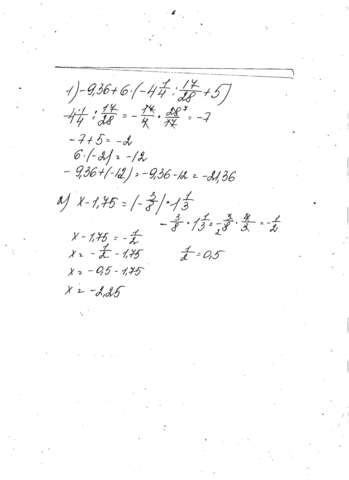 1) -9,36 + 6 · (-4 1/4 : 17/28 + 5)
-4 1/4 : 17/28 = - 17/4 · 28 7/17 = -7
-7 + 5 = -2
6 · (-2) = -12
-9,36 + (-12) = -9,36 - 12 = -21,36
2) x - 1,75 = (- 3/8) · 1 1/3
- 3/8 · 1 1/3 = - 3/2 8 · 4/3 = - 1/2
x - 1,75 = - 1/2
x = - 1/2 - 1,75 1/2 = 0,5
x = -0,5 - 1,75
x = -2,25